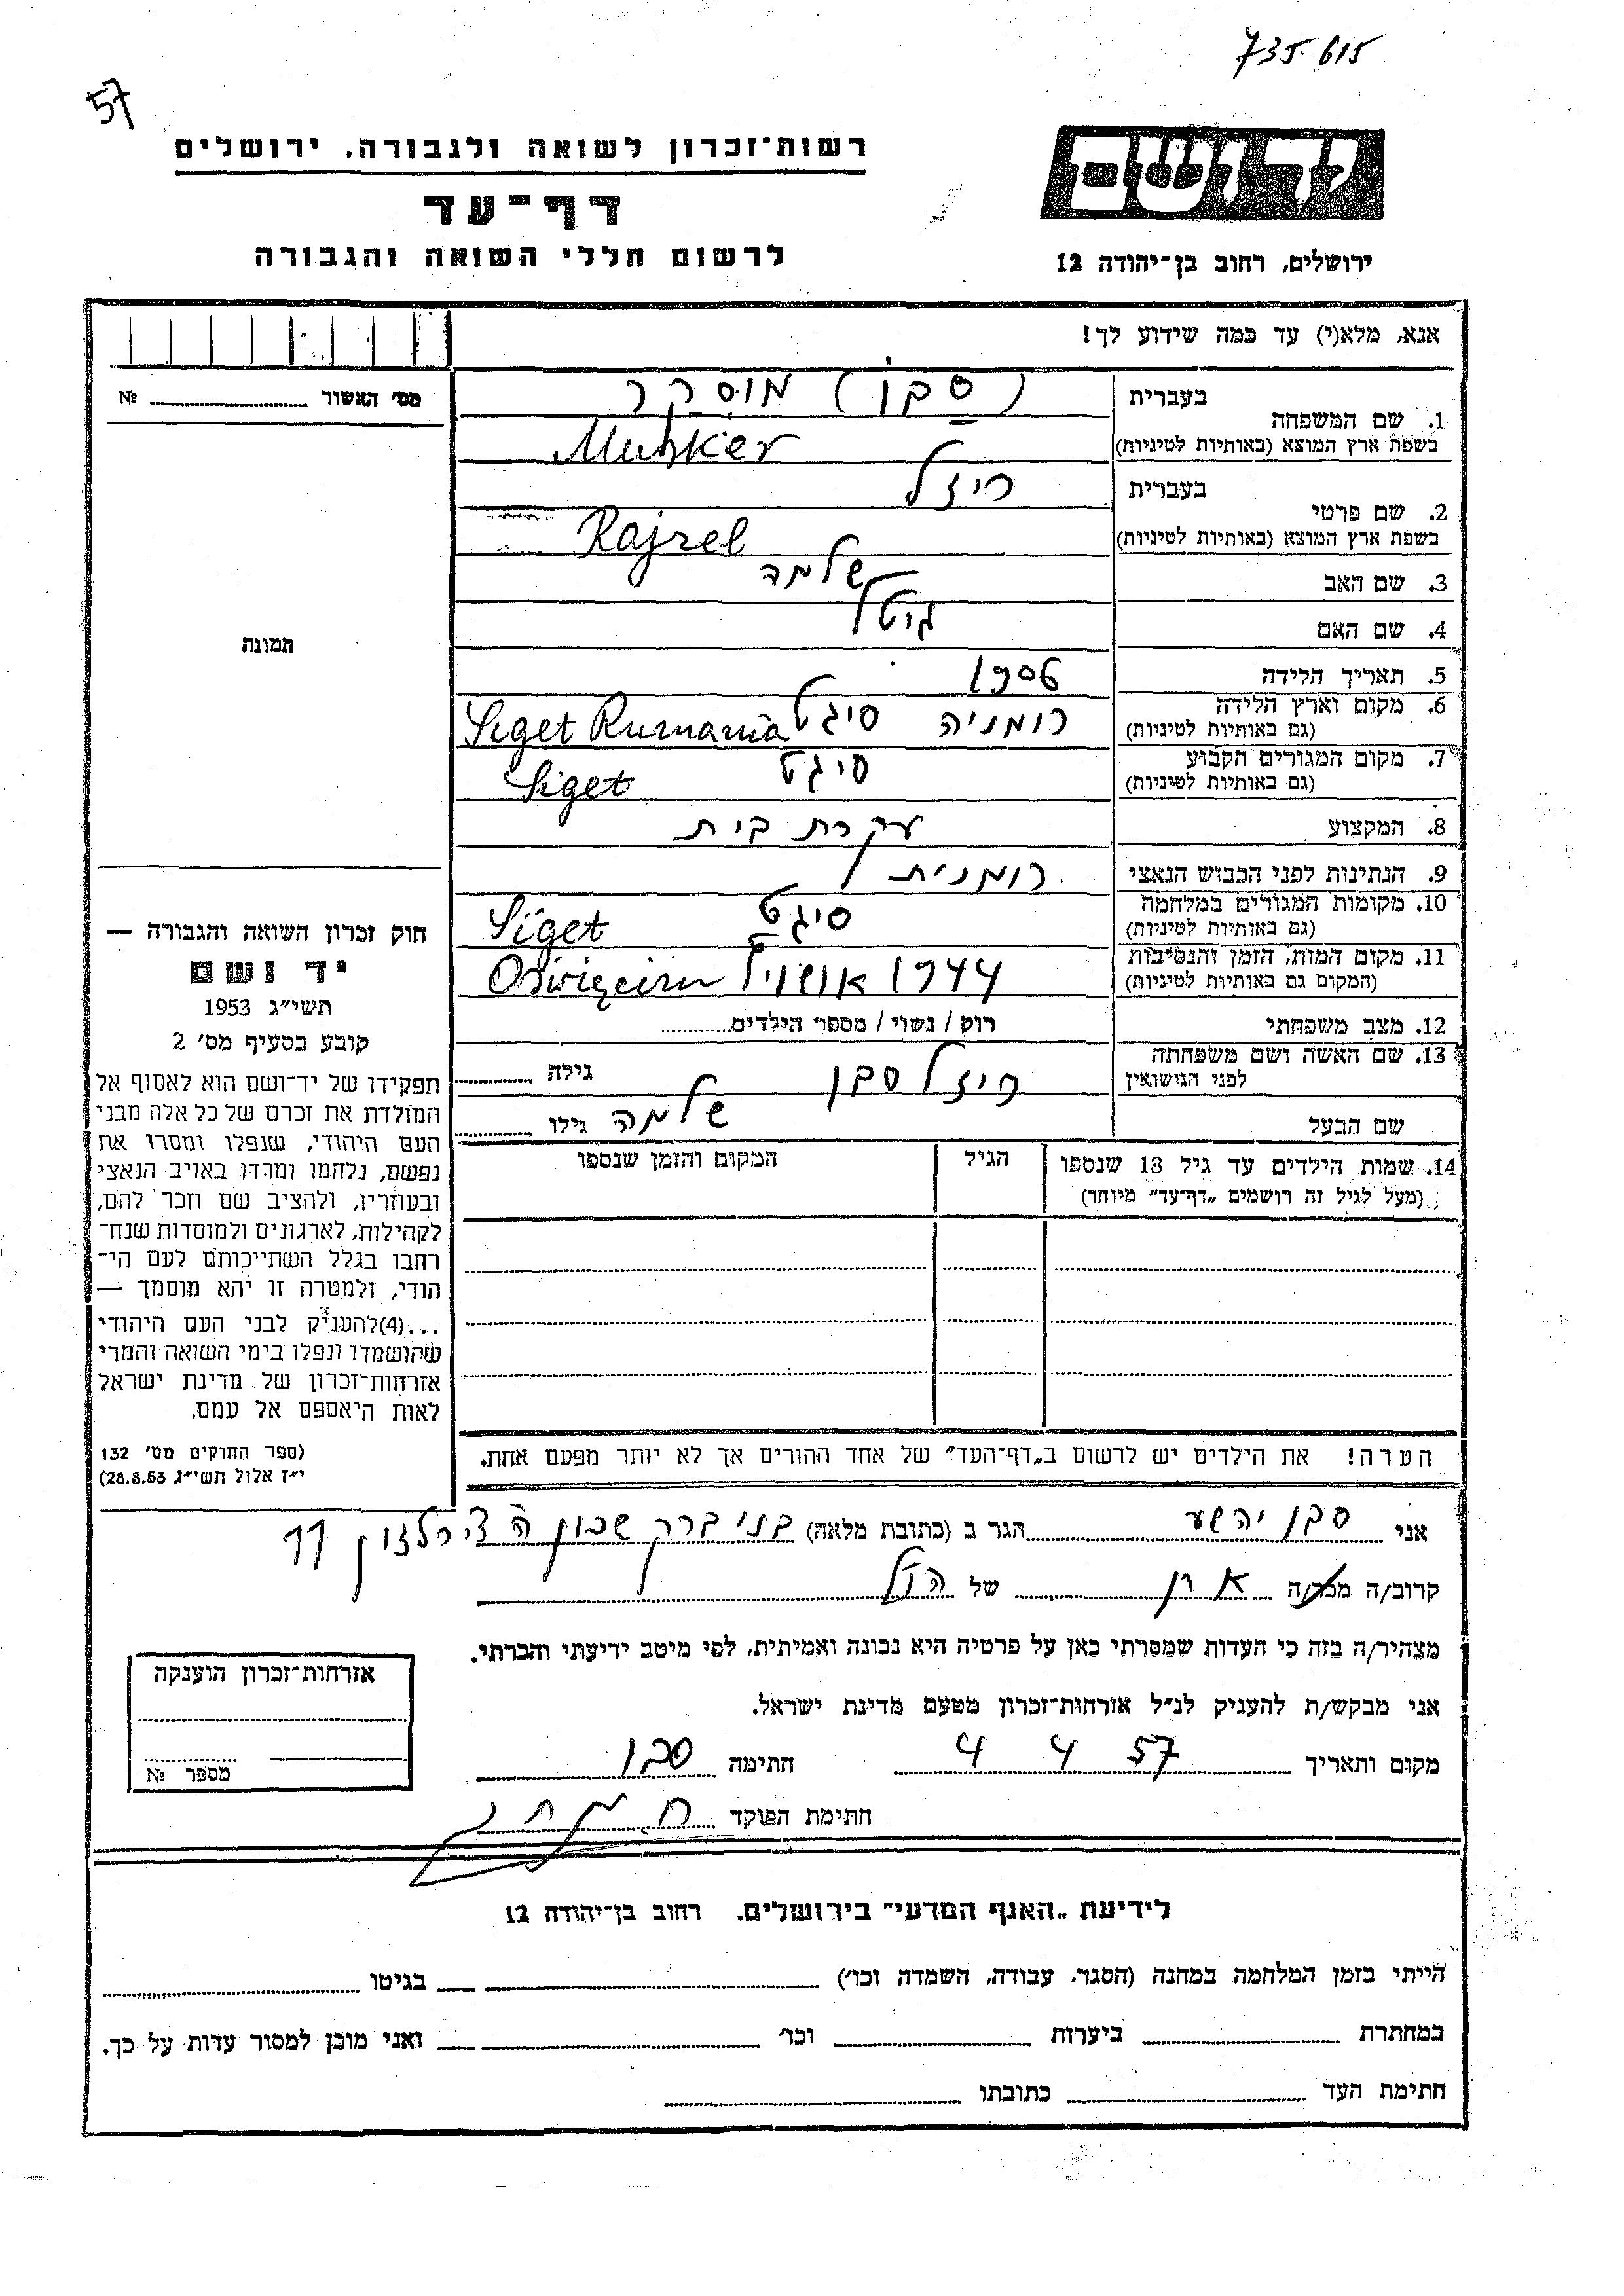 735.615
57
יד ושם
רשות־זכרון לשואה ולגבורה, ירושלים
דף־עד
לרשום חללי השואה והגבורה
ירושלים, רחוב בן־יהודה 12
אנא, מלא(י) עד כמה שידוע לך!
מס׳ האשור № 
1. שם המשפחה
בעברית (סבן) מוסקר
בשפת ארץ המוצא (באותיות לטיניות) Musker
2. שם פרטי
בעברית רייזל
בשפת ארץ המוצא (באותיות לטיניות) Rajzel
3. שם האב שלמה
4. שם האם גיטל
5. תאריך הלידה 1906
6. מקום וארץ הלידה (גם באותיות לטיניות) רומניה סיגט Siget Rumania
7. מקום המגורים הקבוע (גם באותיות לטיניות) סיגט Siget
8. המקצוע עקרת בית
9. הנתינות לפני הכבוש הנאצי רומנית
10. מקומות המגורים במלחמה (גם באותיות לטיניות) סיגט Siget
11. מקום המות, הזמן והנסיבות (המקום גם באותיות לטיניות) 1944
12. מצב משפחתי רוק / נשוי / מספר הילדים
13. שם האשה ושם משפחתה לפני הנישואין רייזל סבן גילה
שם הבעל שלמה גילו
14. שמות הילדים עד גיל 13 שנספו הגיל המקום והזמן שנספו
(מעל לגיל זה רושמים „דף־עד״ מיוחד)
הערה! את הילדים יש לרשום ב„דף־העד״ של אחד ההורים אך לא יותר מפעם אחת.
תמונה
חוק זכרון השואה והגבורה —
יד ושם
תשי״ג 1953
קובע בסעיף מס׳ 2
תפקידו של יד־ושם הוא לאסוף אל
המולדת את זכרם של כל אלה מבני
העם היהודי, שנפלו ומסרו את
נפשם, נלחמו ומרדו באויב הנאצי
ובעוזריו, ולהציב שם וזכר להם,
לקהילות, לארגונים ולמוסדות שנח־
רבו בגלל השתייכותם לעם הי־
הודי, ולמטרה זו יהא מוסמך —
...(4) להעניק לבני העם היהודי
שהושמדו ונפלו בימי השואה והמרי
אזרחות־זכרון של מדינת ישראל
לאות היאספם אל עמם.
(ספר החוקים מס׳ 132
י״ז אלול תשי״ג 28.8.53)
אני סבן יהשע הגר ב (כתובת מלאה) בני ברק שכון ה 11
קרוב/ה מכר/ה של הנ״ל
מצהיר/ה בזה כי העדות שמסרתי כאן על פרטיה היא נכונה ואמיתית, לפי מיטב ידיעתי והכרתי.
אני מבקש/ת להעניק לנ״ל אזרחות־זכרון מטעם מדינת ישראל.
מקום ותאריך 4 4 57 חתימה סבן
חתימת הפוקד
אזרחות־זכרון הוענקה
מספר №
לידיעת „האגף המדעי״ בירושלים, רחוב בן־יהודה 12
הייתי בזמן המלחמה במחנה (הסגר, עבודה, השמדה וכו׳) בגיטו
במחתרת ביערות וכו׳ ואני מוכן למסור עדות על כך.
חתימת העד כתובתו